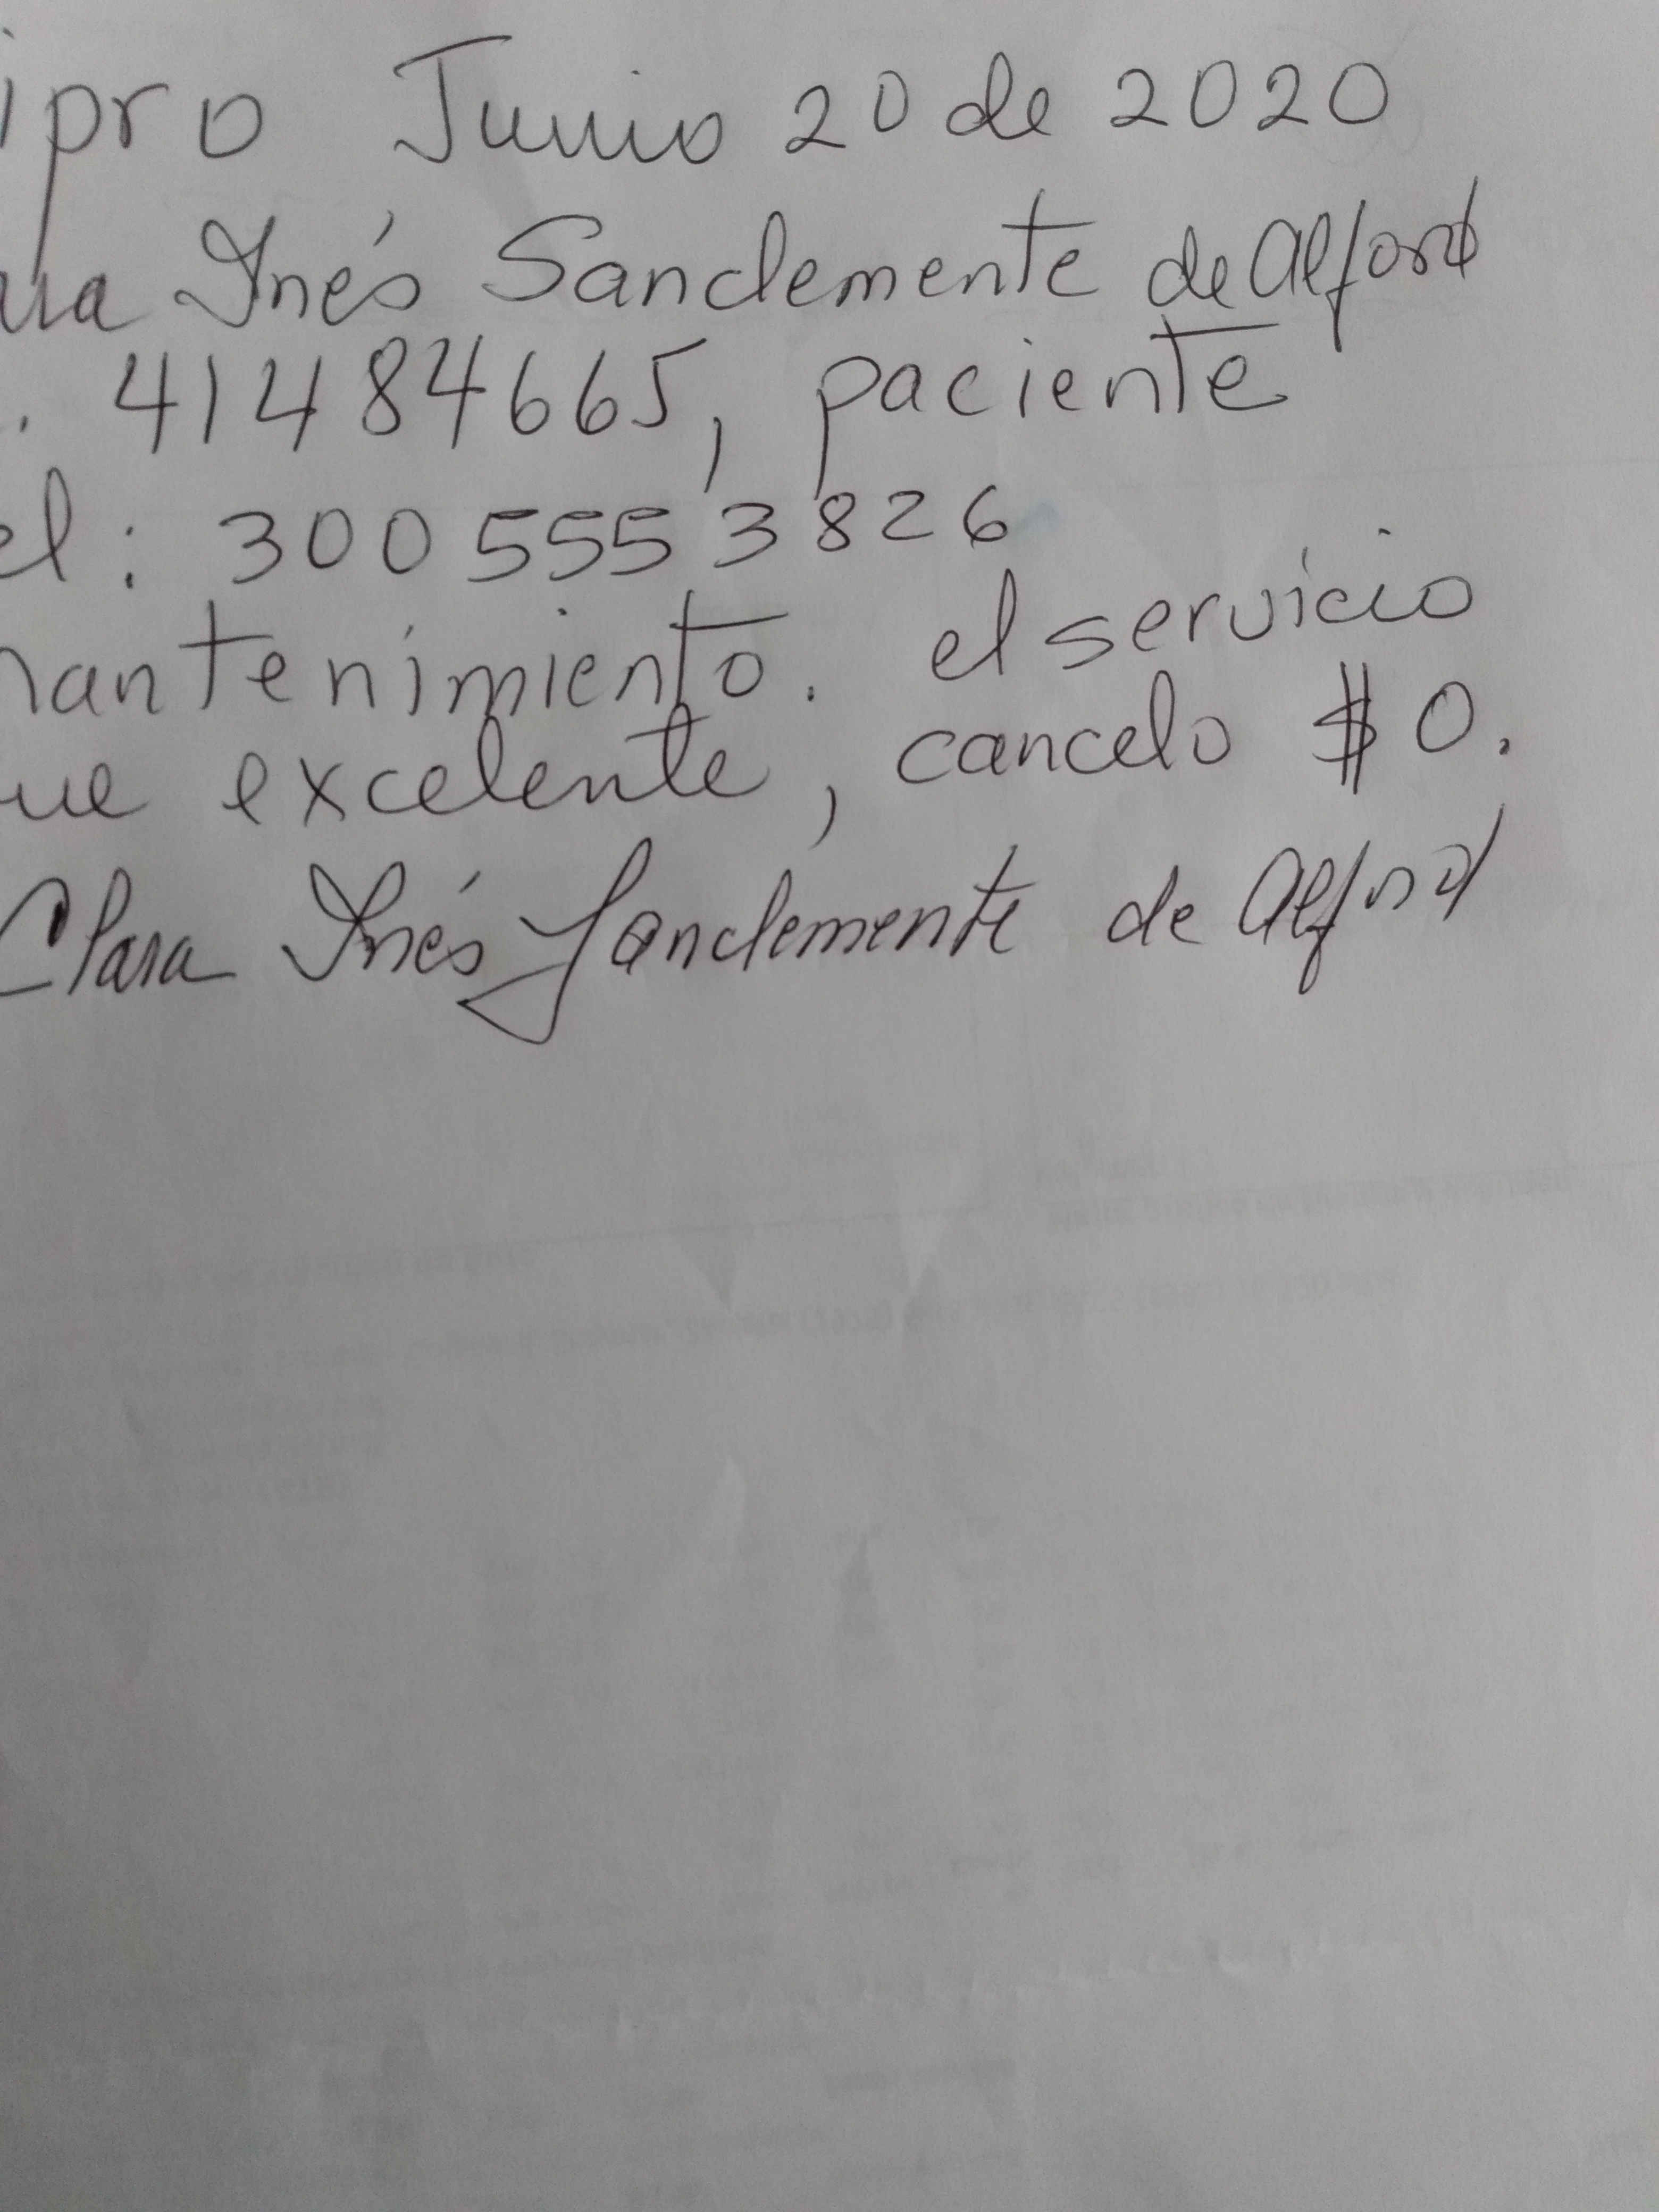 ipro Junio 20 de 2020
ra Inés Sanclemente de Alford
. 41484665, paciente
el: 300 555 3826
mantenimiento. el servicio
ue excelente, cancelo $0.
Clara Inés Sanclemente de Alford